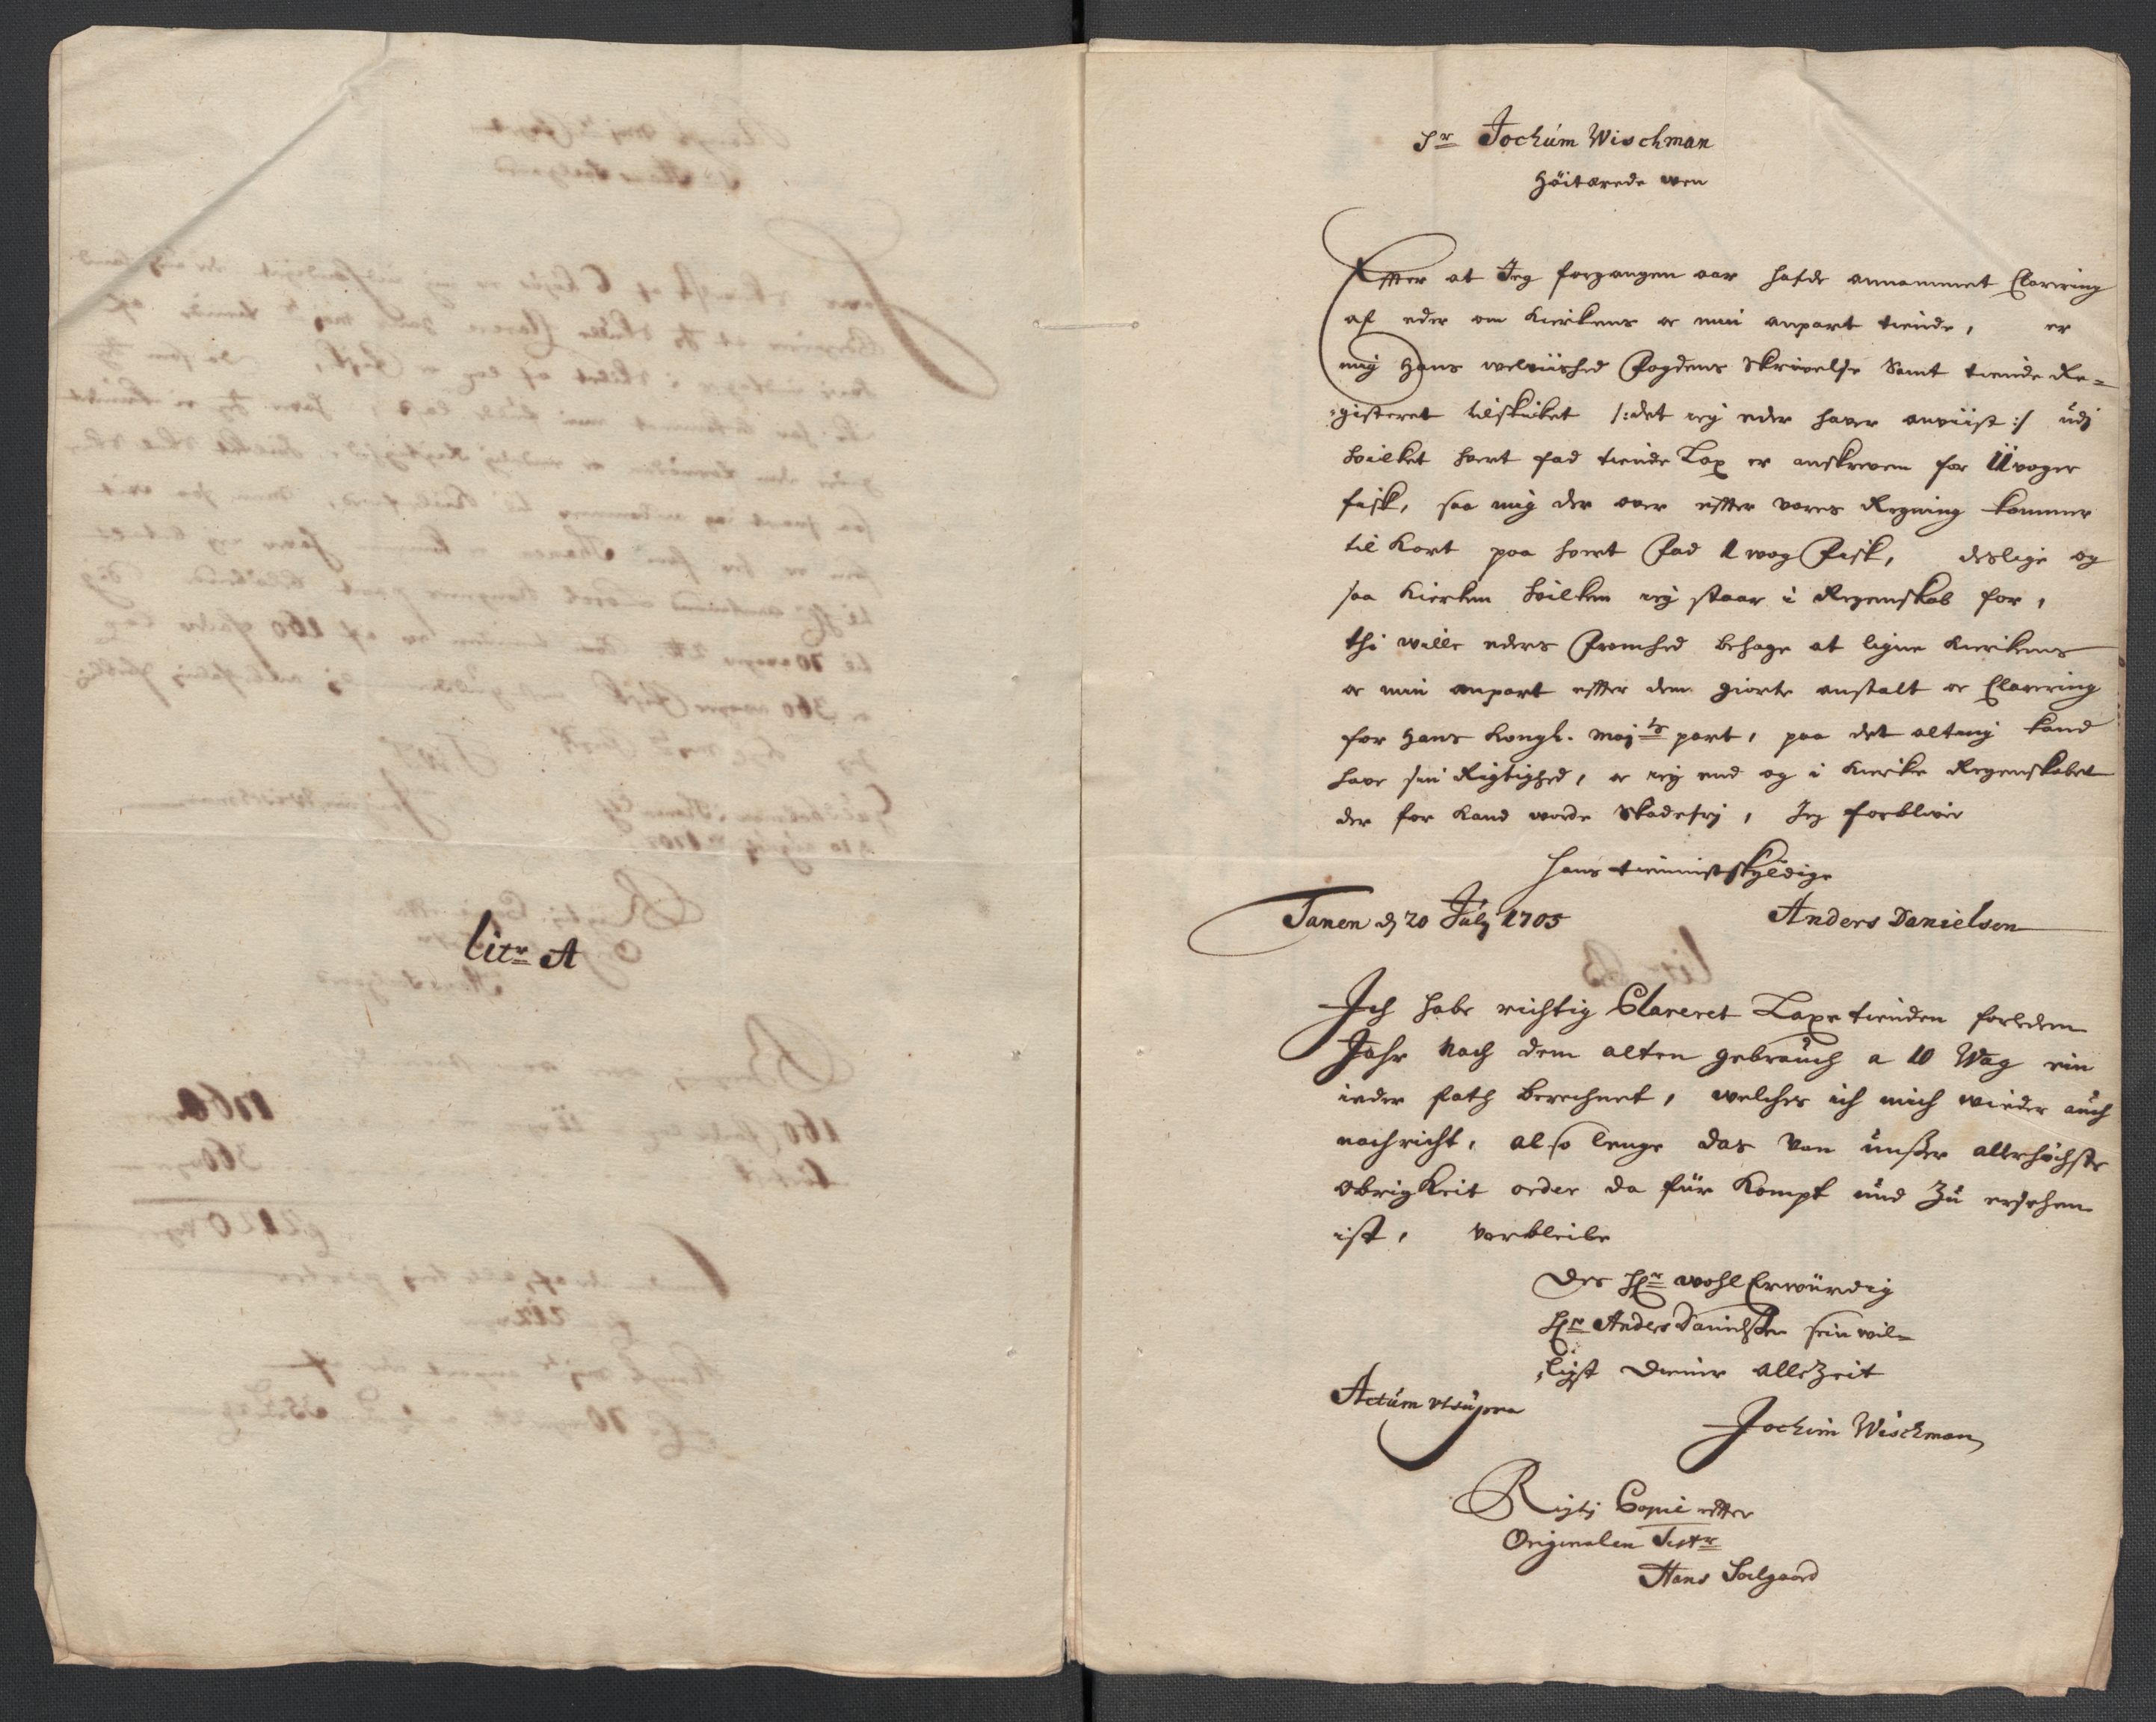 litr A
Sr Jochum Wischman
Höitærede wen
Effter at Jeg forgangen aar hafde annammet Clarering
af eder om Kierkens oc min anpart tiende, er
mig Hans welviished Fogdens Skrivelse Samt tiende Re-
gisteret tilskicket /:det ieg eder haver anviist:/ udj
hvilket hvert fad tiende Lax er anskreven for 11 voger
fisk, saa mig der over effter vores Regning kommer
til Kort paa hvert Fad 1 wog Fisk, deslige og
saa Kierken hvilken ieg staar i Regenskab for,
thi wille eders Fromhed behage at ligne Kierkens
oc min anpart effter dem giorte anstalt oc Clarering
for Hans Kongl. Maj:ts part, paa det alting kand
have sin Rigtighed, oc ieg end og i Kierke Regenskabet
der for Kand worde Skadesfrj, Jeg forbliver
Hans tienniststkyldige
Tanen dj 20 Julij 1705 Anders Danielsen
Jch habe richtig Clareret Laxe tienden forledem
Jahr Nach dem alten gebrauch a 10 Wag ein
ieder fath berechnet, welches ich mich wieder auch
nachricht, also lenge das Van unsser allerhöchste
obrigkeit order da für Kompt und Zu ersehen
ist, verbleibe
Des Hr: wohl Erwürdig
Hr: Anders Danielssen sein wil-
ligst Diener alle Zeit
Actum ut supra
Jochim Wischman
Rigtig Copie effter
Originalen Testr
Hans Soelgaard